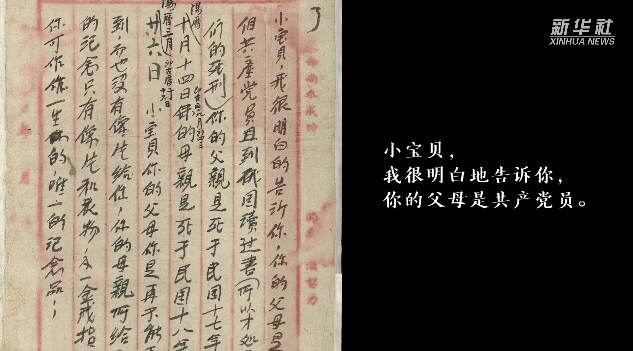 小宝贝，我很明白的告訴你，你的父母是
個共產党員且到俄国讀过書(所以才处
们的死刑)你的父親是死于民国十七年
陽曆
十月十四日你的母親是死于民国十八年
陽曆三月
廿六日 小宝贝你的父母你是再不能
到，而也没有像片给你，你的母親所给
的记念只有像片和衣物，及一金戒指
你可作你一生的，唯一的记念品！
尚未成功
努力
月
新华社
XINHUA NEWS
小宝贝，
我很明白地告诉你，
你的父母是共产党员。